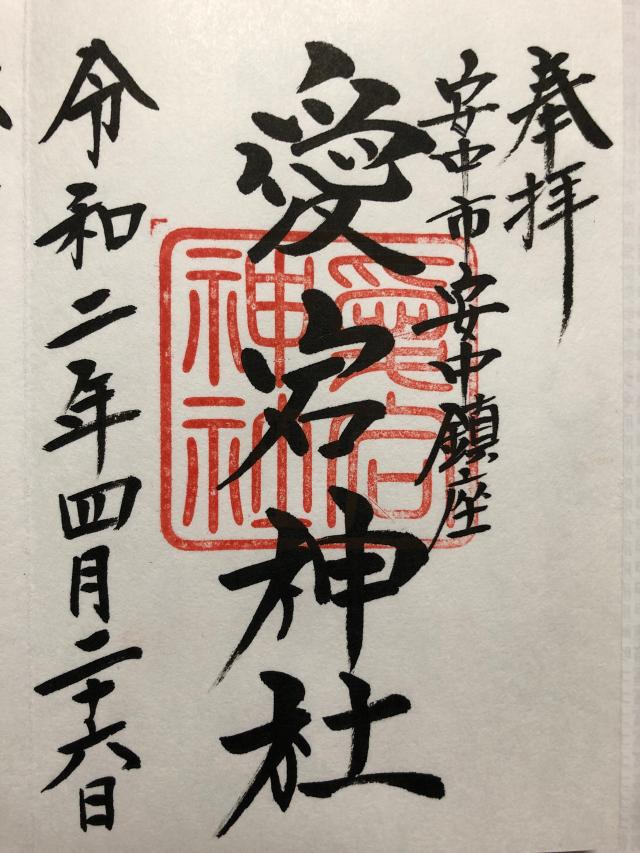 奉拝
安中市安中鎮座
愛宕神社
愛宕神社
令和二年四月二十六日